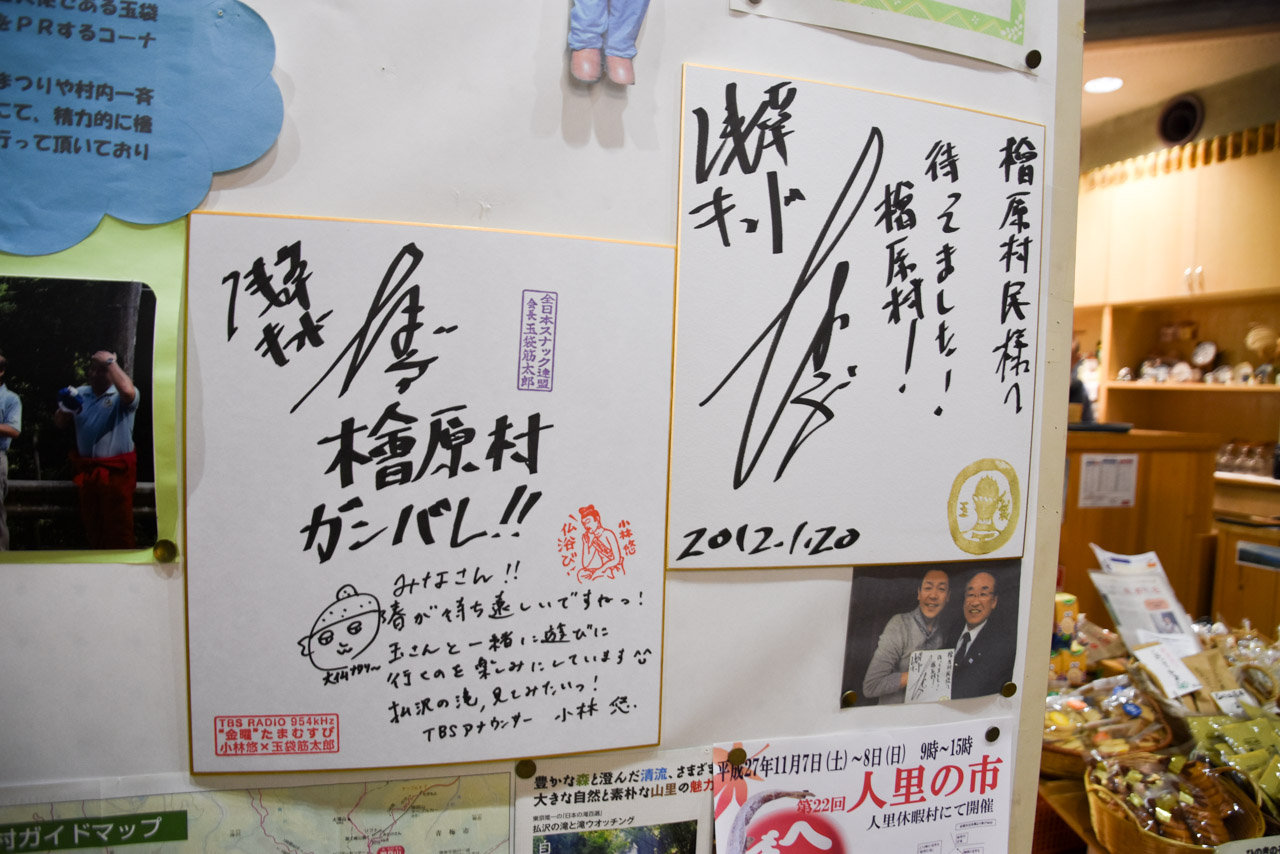 である玉袋
をPRするコーナ
まつりや村内一斉
にて、精力的に檜
行って頂いており
浅草
キッド
全日本スナック連盟
会長 玉袋筋太郎
檜原村
ガンバレ!!
小林悠
仏谷び!
みなさん!!
春が待ち遠しいですねっ!
玉さんと一緒に遊びに
行くのを楽しみにしています
払沢の滝,見てみたいっ!
TBSアナウンサー 小林 悠
TBS RADIO 954kHz
"金曜"たまむすび
小林悠×玉袋筋太郎
檜原村民様へ
待ってました!
檜原村!
浅草
キッド
玉袋
2012.1.20
村ガイドマップ
青梅市
豊かな森と澄んだ清流、さまざま
大きな自然と素朴な山里の魅力
東京唯一の「日本の滝百選」
払沢の滝と滝ウオッチング
平成27年11月7日(土)~8日(日) 9時~15時
第22回 人里の市
人里休暇村にて開催